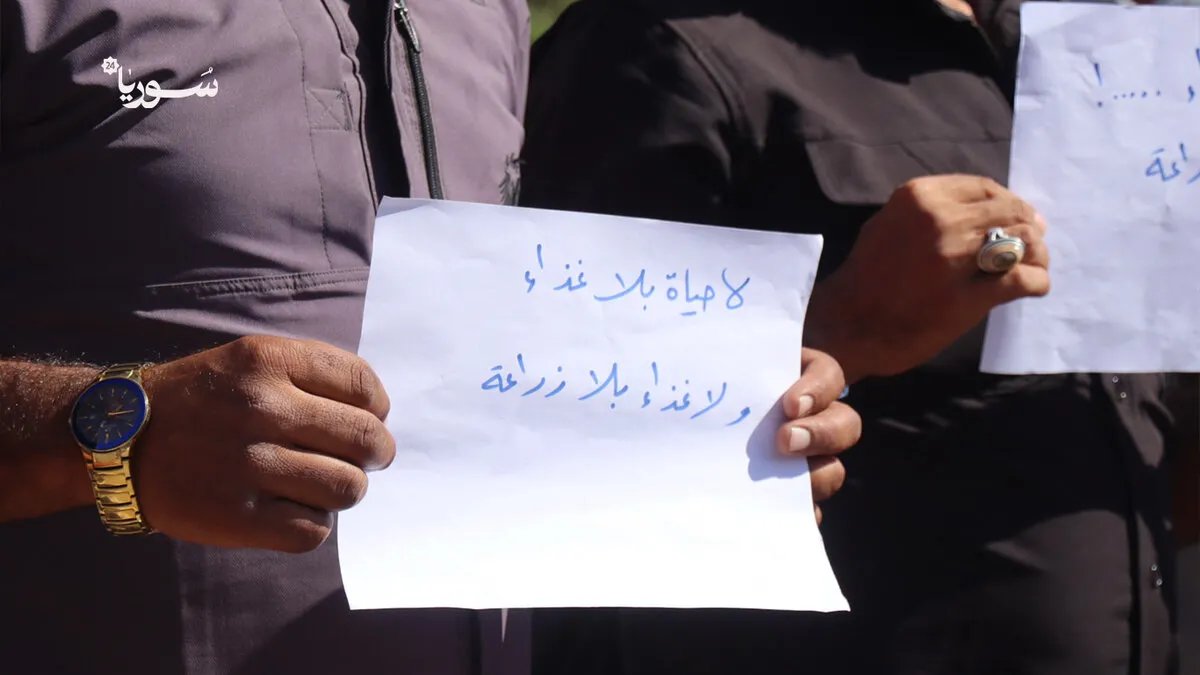 سوريا 24
لا حياة بلا غذاء
ولا غذاء بلا زراعة
.....!